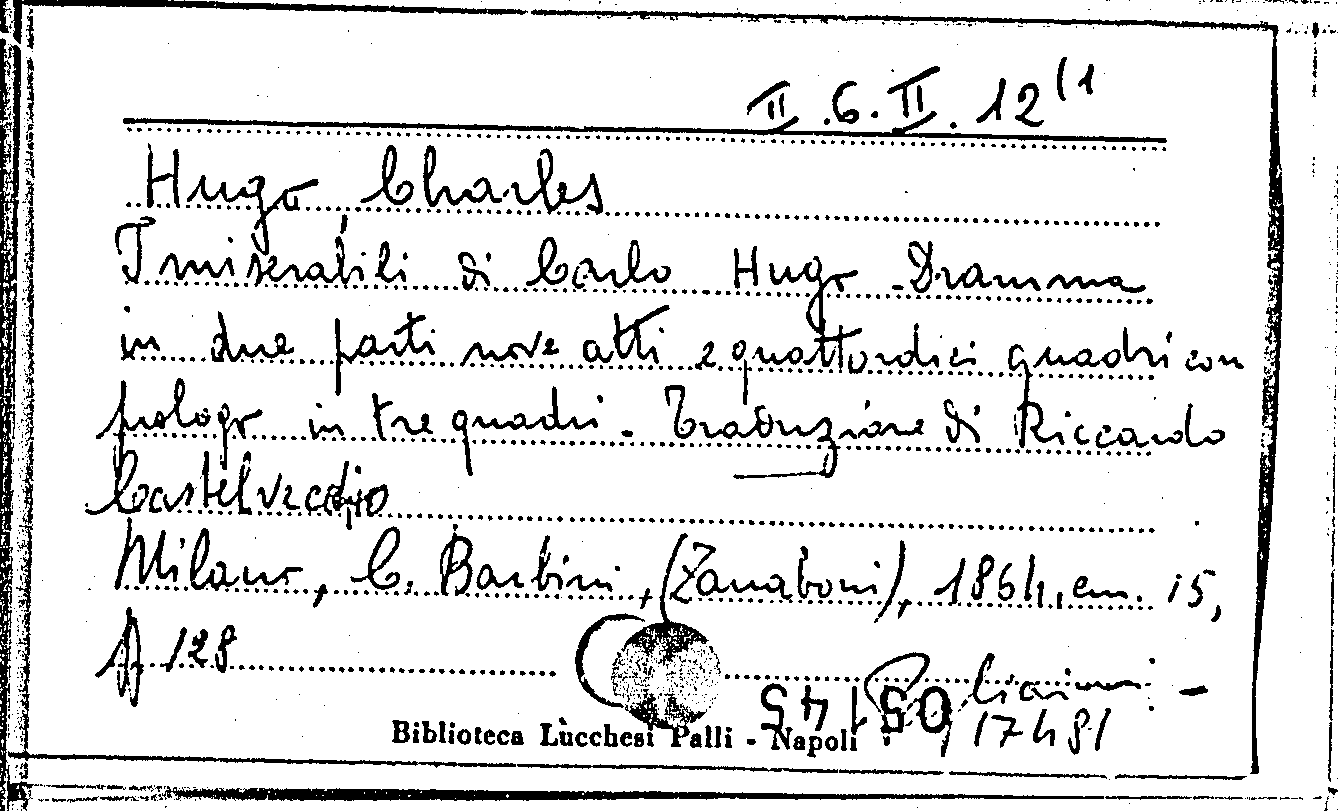 II.6.II.12(1
Hugo, Charles
I miserabili di Carlo Hugo Dramma
in due parti nove atti e quattordici quadri con
prologo in tre quadri. Traduzione di Riccardo
Castelvecchio
Milano, C. Barbini, (Zanaboni), 1864, cm. 15,
p 128
Pogliaini -
051 45
17481
Biblioteca Lucchesi Palli - Napoli